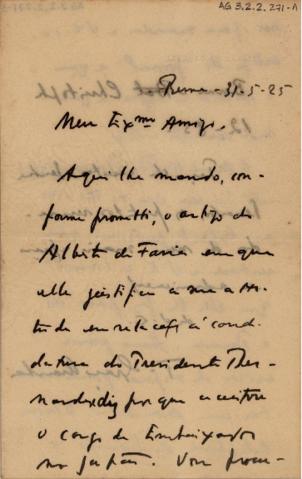 AG 3.2.2.271-A
Roma - 31-5-25
Meu Exmo Amigo,
Aqui lhe mando, con-
forme prometti, o artigo do
Alberto de Faria em que
elle justifica a sua atti-
tude em relação á candi-
datura do Presidente Ber-
nardes e diz por que aceitou
o cargo de Embaixador
no Japão. Vou